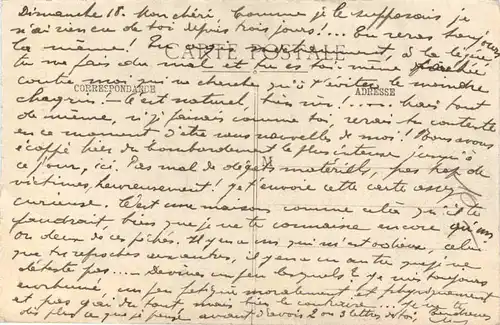 Dimanche 18. Mon chéri, Comme je le supposais je
n'ai rien eu de toi depuis trois jours!... Tu seras toujours
la même! Tu es méchamment, à la ligne
CARTE POSTALE
tu me fais du mal et tu es toi même fachée
contre moi qui ne cherche qu'à t'éviter le moindre
CORRESPONDANCE
ADRESSE
chagrin - c'est naturel, bien sûr!... mais tout
de même, si j'faisais comme toi, serais tu contente
en ce moment d'être sans nouvelles de moi! Nous avons
écopé hier du bombardement le plus intense jusqu'à
ce jour, ici. Pas mal de dégâts matériels, pas trop de
victimes, heureusement! je t'envoie cette carte assez
curieuse. C'est une maison comme celà qu'il te
faudrait, bien que je ne te connaisse encore qu'un
ou deux de ces péchés. Il y en a un qui m'est odieux, celui
que tu reproches aux autres, il y en a un autre que je ne
deteste pas... - Devines un peu lesquels? Je suis toujours
enrhumé, un peu fatigué moralement et physiquement
et pas gai du tout mais bien le contraire... Je te
dis plus ce que je pense avant d'avoir 2 ou 3 lettres de toi. Tendresses